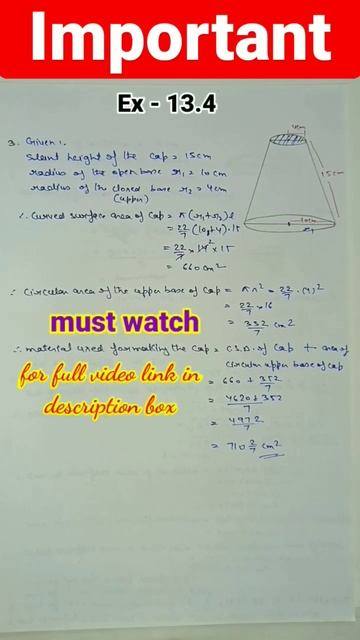 Important
Ex - 13.4
4cm
3. Given :.
Slent height of the cap = 15cm
radius of the open base r₁ = 10cm
radius of the closed base r₂ = 4cm
(upper)
15cm
10cm
r₁
∴ Curved surface area of cap = π(r₁+r₂)l
= 22/7 (10+4)·15
= 22/7 × 14² × 15
= 660cm²
∴ Circular area of the upper base of cap = πr² = 22/7 · (4)²
= 22/7 × 16
= 352/7 cm²
must watch
∴ material used for making the cap = C.S.A. of cap + area of
circular upper base of cap
for full video link in
description box
= 660 + 352/7
= 4620+352/7
= 4972/7
= 710 2/7 cm²